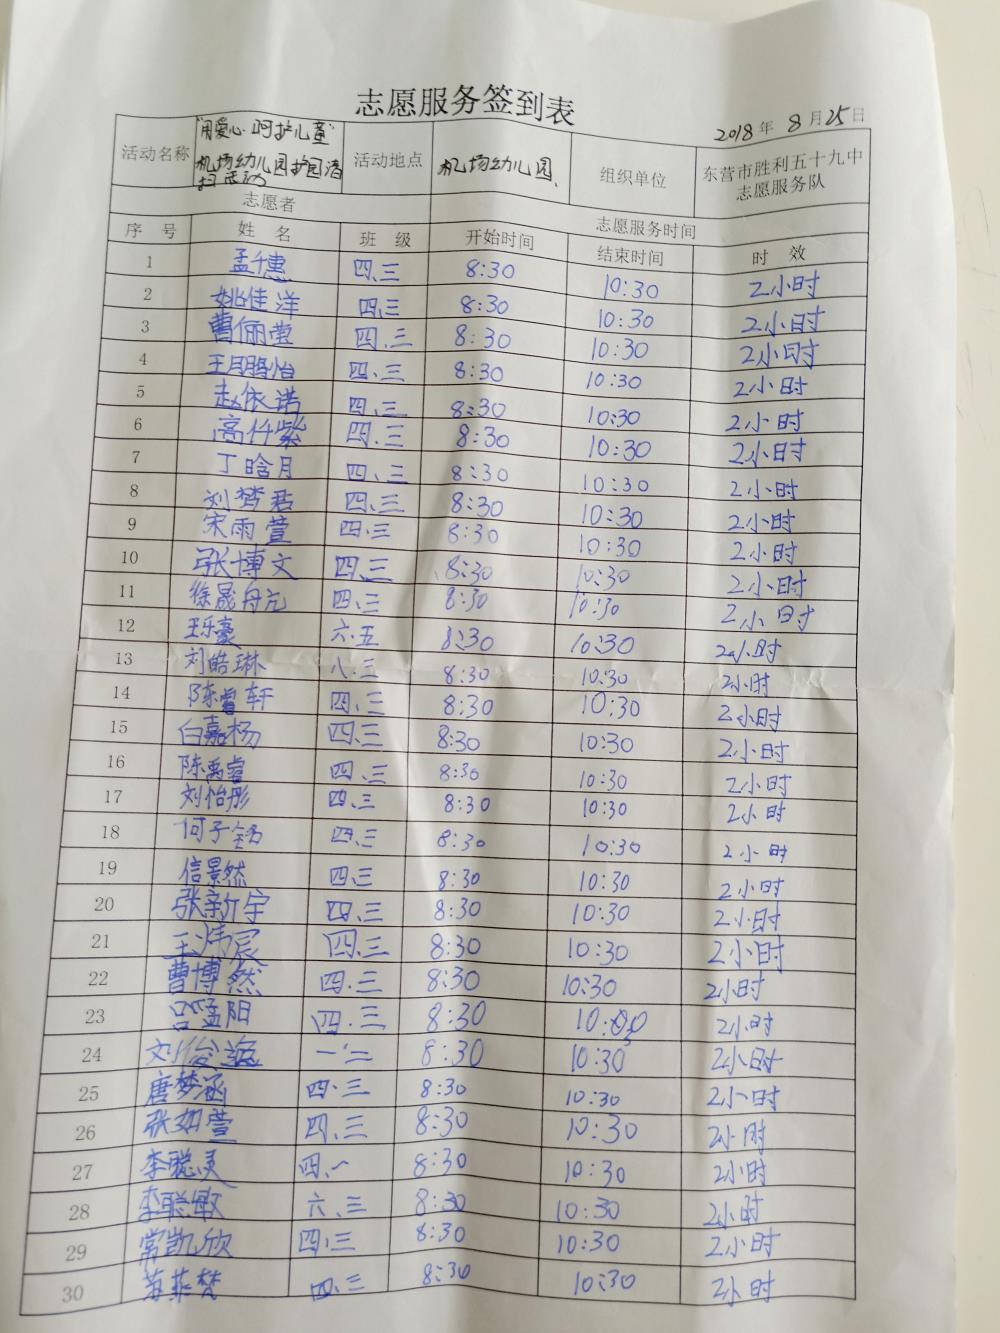 志愿服务签到表
2018年 8月25日
活动名称 "用爱心·呵护儿童" 机场幼儿园护园清扫活动 活动地点 机场幼儿园、 组织单位 东营市胜利五十九中志愿服务队
志愿者 志愿服务时间
序 号 姓 名 班 级 开始时间 结束时间 时 效
1 孟千惠 四、三 8:30 10:30 2小时
2 姚佳洋 四、三 8:30 10:30 2小时
3 曹俪莹 四、三 8:30 10:30 2小时
4 王月鹏怡 四、三 8:30 10:30 2小时
5 赵依诺 四、三 8:30 10:30 2小时
6 高仟紫 四、三 8:30 10:30 2小时
7 丁晗月 四、三 8:30 10:30 2小时
8 刘梦君 四、三 8:30 10:30 2小时
9 宋雨萱 四、三 8:30 10:30 2小时
10 张博文 四、三 8:30 10:30 2小时
11 徐晟舟亢 四、三 8:30 10:30 2小时
12 王乐豪 六·五 8:30 10:30 2小时
13 刘皓琳 八·三 8:30 10:30 2小时
14 陈睿轩 四、三 8:30 10:30 2小时
15 白嘉杨 四、三 8:30 10:30 2小时
16 陈禹睿 四、三 8:30 10:30 2小时
17 刘怡彤 四、三 8:30 10:30 2小时
18 何子铭 四、三 8:30 10:30 2小时
19 信景然 四、三 8:30 10:30 2小时
20 张新宇 四、三 8:30 10:30 2小时
21 王炜宸 四、三 8:30 10:30 2小时
22 曹博然 四、三 8:30 10:30 2小时
23 吕孟阳 四、三 8:30 2小时
24 刘俊 一·二 8:30 10:30 2小时
25 唐梦涵 四·三 8:30 10:30 2小时
26 张如萱 四、三 8:30 10:30 2小时
27 李聪灵 四、一 8:30 10:30 2小时
28 李聪敏 六、三 8:30 10:30 2小时
29 常凯欣 四、三 8:30 10:30 2小时
30 菲梵 四、三 8:30 10:30 2小时